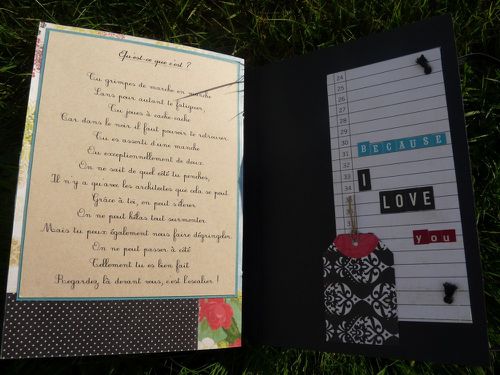 Qu'est ce que c'est ?
Tu grimpes de marche en marche
Sans pour autant te fatiguer,
Tu joues à cache cache
Car dans le noir il faut pouvoir te retrouver.
Tu es assorti d'une marche
Ou exceptionnellement de deux.
On ne sait de quel côté tu penches,
Il n'y a qu'avec les architectes que cela se peut.
Grâce à toi, on peut s'élever
On ne peut hélas tout surmonter.
Mais tu peux également nous faire dégringoler.
On ne peut passer à côté
Tellement tu es bien fait
Regardez, là devant vous, c'est l'escalier !
24
25
26
27
28
29
30
31
32
33
34
BECAUSE
I
LOVE
you